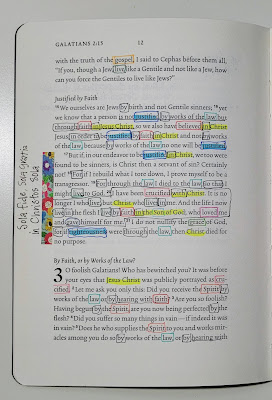 GALATIANS 2:15
12
with the truth of the gospel, I said to Cephas before them all,
"If you, though a Jew, live like a Gentile and not like a Jew, how
can you force the Gentiles to live like Jews?"
Justified by Faith
15 We ourselves are Jews by birth and not Gentile sinners; 16 yet
we know that a person is not justified by works of the law but
through faith in Jesus Christ, so we also have believed in Christ
Jesus, in order to be justified by faith in Christ and not by works
of the law, because by works of the law no one will be justified.
17 But if, in our endeavor to be justified in Christ, we too were
found to be sinners, is Christ then a servant of sin? Certainly
not! 18 For if I rebuild what I tore down, I prove myself to be a
transgressor. 19 For through the law I died to the law, so that I
might live to God. 20 I have been crucified with Christ. It is no
longer I who live, but Christ who lives in me. And the life I now
live in the flesh I live by faith in the Son of God, who loved me
and gave himself for me. 21 I do not nullify the grace of God,
for if righteousness were through the law, then Christ died for
no purpose.
Sola Fide Sola Gratia
in Christus Sola
By Faith, or by Works of the Law?
3 O foolish Galatians! Who has bewitched you? It was before
your eyes that Jesus Christ was publicly portrayed as cru-
cified. 2 Let me ask you only this: Did you receive the Spirit by
works of the law or by hearing with faith? 3 Are you so foolish?
Having begun by the Spirit, are you now being perfected by the
flesh? 4 Did you suffer so many things in vain—if indeed it was
in vain? 5 Does he who supplies the Spirit to you and works mir-
acles among you do so by works of the law, or by hearing with